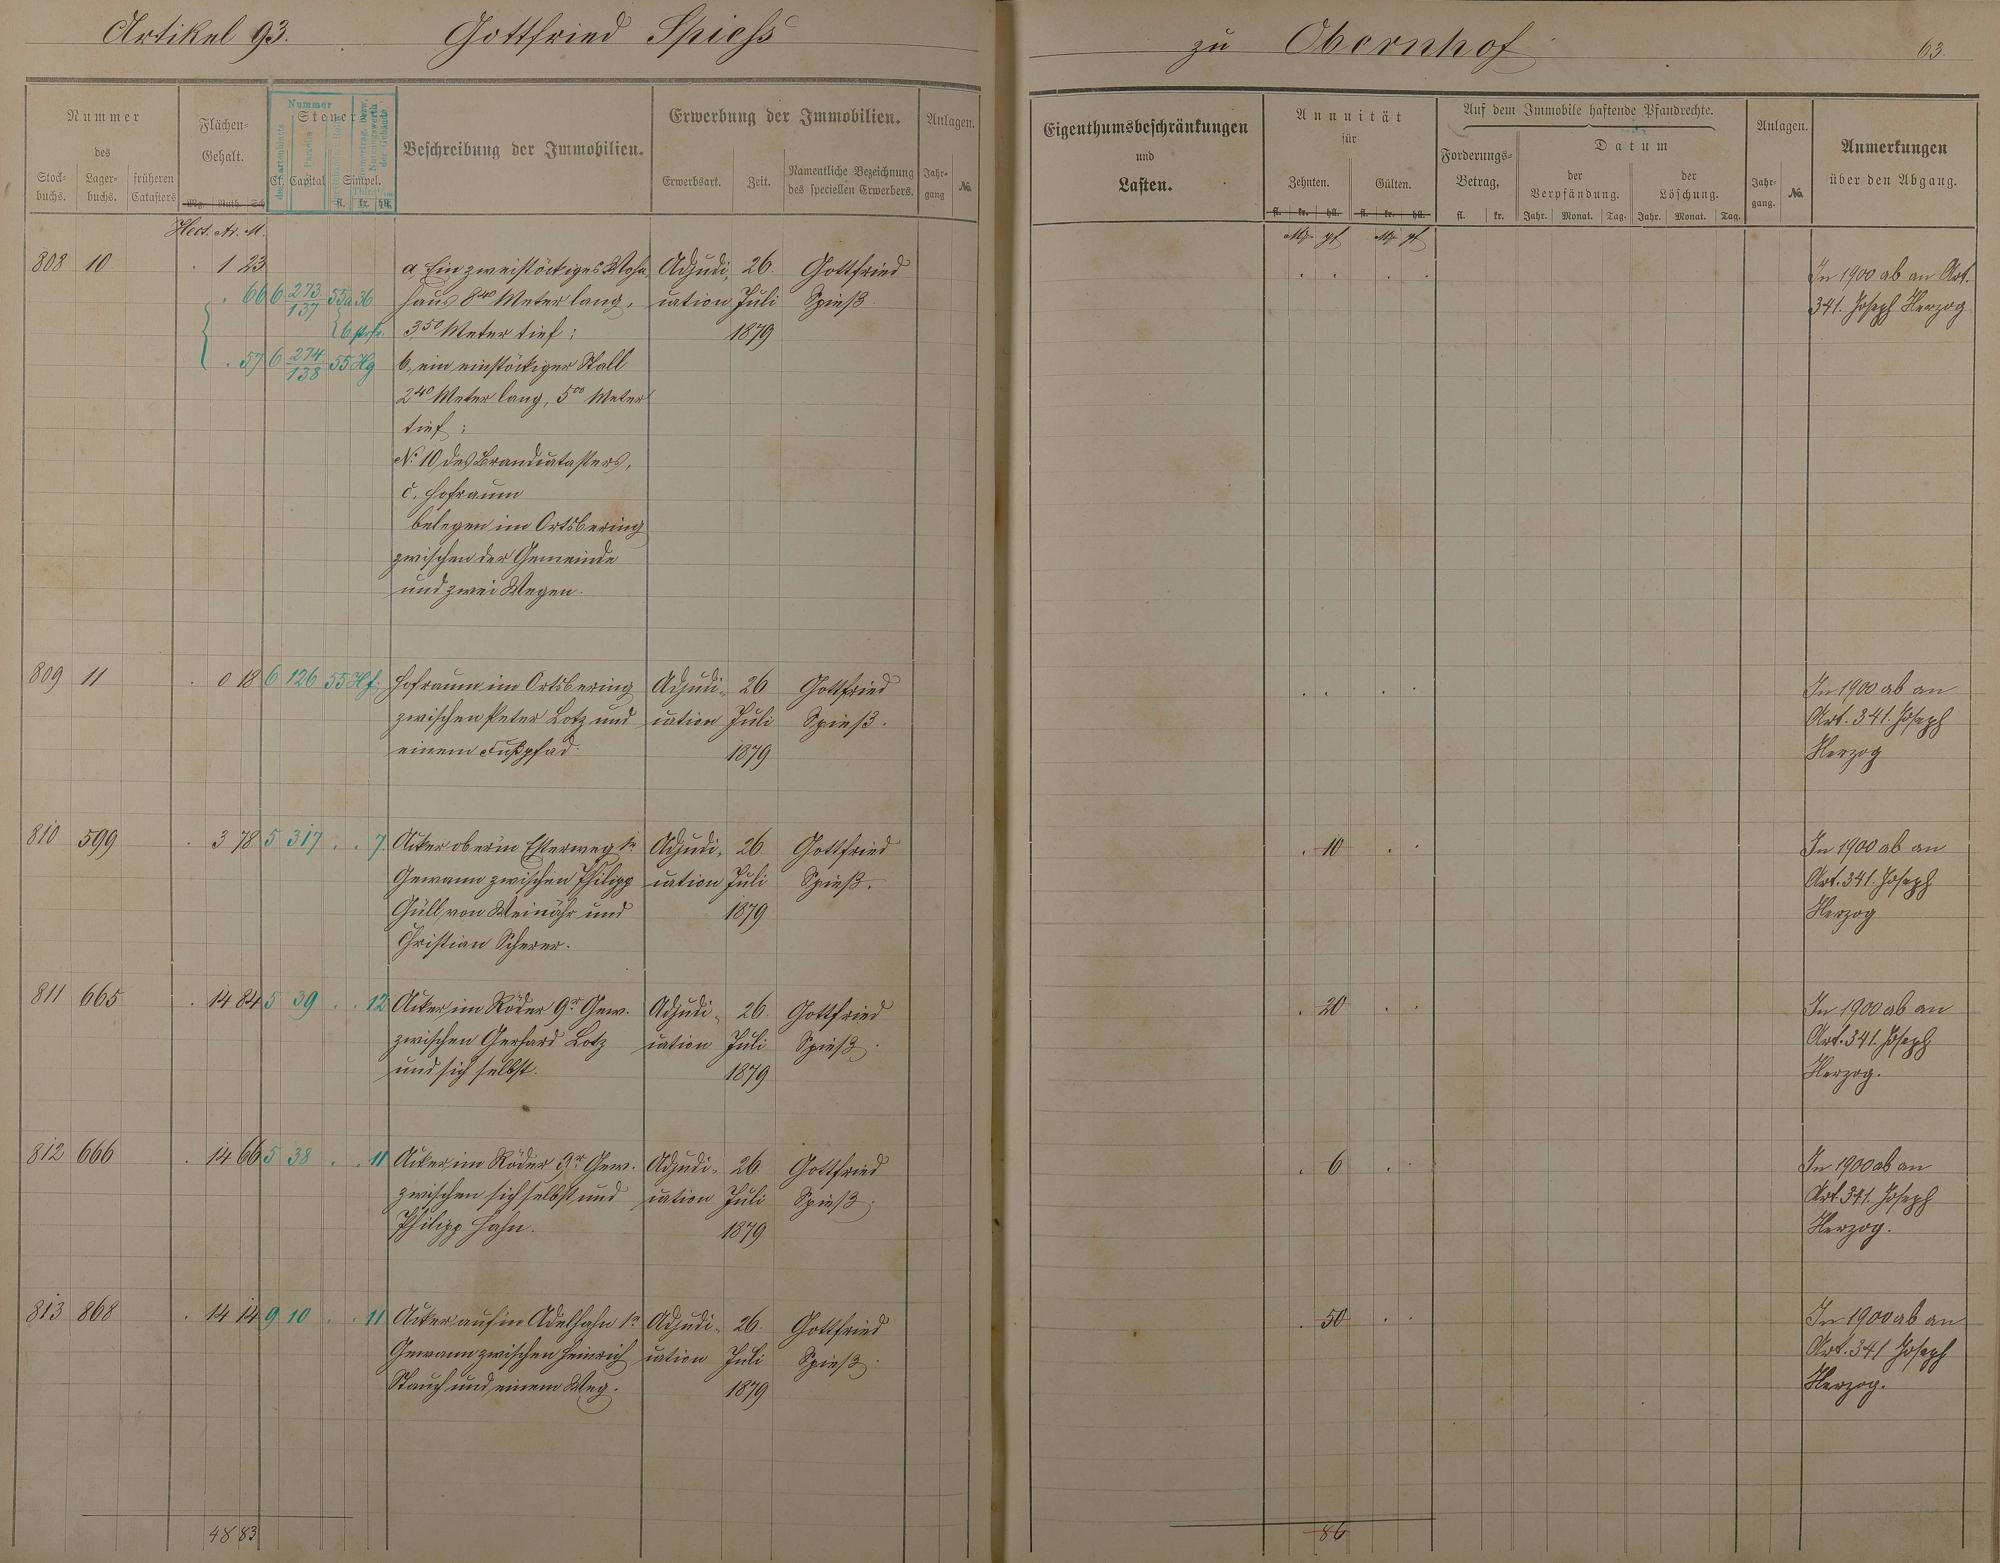 Artikel 93. Gottfried Spiess zu Obernhof 63.
Nummer
des
Stock-
buchs.
Lager-
buchs.
früheren
Catasters
Flächen-
Gehalt.
Mg. Ruth. Sch.
Hect. Ar. M.
Nummer
Steuer
Ct. Capital Simpel.
fl. kr. hll.
Beschreibung der Immobilien.
Erwerbung der Immobilien.
Erwerbsart.
Zeit.
Namentliche Bezeichnung
des speciellen Erwerbers.
Anlagen.
Jahr-
gang
No.
Eigenthumsbeschränkungen
und
Lasten.
Annuität
für
Zehnten.
Gülten.
fl. kr. hll. fl. kr. hll.
Mk pf Mk pf
Auf dem Immobile haftende Pfandrechte.
Forderungs-
Betrag,
fl. kr.
Datum
der
Verpfändung.
Jahr. Monat. Tag.
der
Löschung.
Jahr. Monat. Tag.
Anlagen.
Jahr-
gang.
No.
Anmerkungen
über den Abgang.
808 10 . 1 23 a, Ein zweistöckiges Wohn- Adjudi- 26. Gottfried In 1900 ab an Art.
. 66 6 273/137 55 a 36 haus 8⁴⁰ Meter lang, cation Juli Spieß. 341. Joseph Herzog
3,⁵⁰ Meter tief; 1879
. 57 6 274/138 55 Hg b, ein einstöckiger Stall
2⁴⁰ Meter lang, 5⁰⁰ Meter
tief;
No. 10 des Brandcatasters,
c. Hofraum
belegen im Ortsbering
zwischen der Gemeinde
und zwei Wegen.
809 11 . 0 18 6 126 55 Hf. Hofraum im Ortsbering Adjudi- 26 Gottfried In 1900 ab an
zwischen Peter Lotz und cation Juli Spieß. Art. 341. Joseph
einem Fußpfad. 1879 Herzog
810 599 . 3 78 5 317 . . 7. Acker oberm Eslerweg 1r Adjudi- 26. Gottfried . 10 . . In 1900 ab an
Gewann zwischen Philipp cation Juli Spieß. Art. 341. Joseph
Güll von Weinähr und 1879 Herzog
Christian Scherer.
811 665 . 14 84 5 39 . . 12 Acker im Röder 9r Gew. Adjudi- 26. Gottfried . 20 . . In 1900 ab an
zwischen Gerhard Lotz cation Juli Spieß. Art. 341. Joseph
und sich selbst. 1879 Herzog.
812 666 . 14 66 5 38 . . 11 Acker im Röder 9r Gew. Adjudi- 26 Gottfried . 6 . . In 1900 ab an
zwischen sich selbst und cation Juli Spieß. Art. 341. Joseph
Philipp Hahn. 1879 Herzog.
813 868 . 14 14 9 10 . . 11 Acker aufm Adelhahn 1r Adjudi- 26. Gottfried . 50 . . In 1900 ab an
Gewann zwischen Heinrich cation Juli Spieß. Art. 341 Joseph
Stauch und einem Weg. 1879 Herzog.
48 83 86